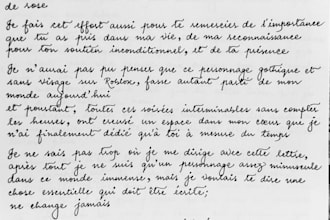 de rose
Je fais cet effort aussi pour te remercier de l'importance
que tu as pris dans ma vie, de ma reconnaissance
pour ton soutien inconditionnel, et de ta présence
Je n'aurai pas pu penser que ce personnage gothique et
sans visage sur Roblox, fasse autant partie de mon
monde aujourd'hui
et pourtant, toutes ces soirées interminables sans compter
les heures, ont creusé un espace dans mon cœur que je
n'ai finalement dédié qu'à toi à mesure du temps
Je ne sais pas trop où je me dirige avec cette lettre,
après tout je ne suis qu'un personnage assez minuscule
dans ce monde immense, mais je voulais te dire une
chose essentielle qui doit être écrite;
ne change jamais